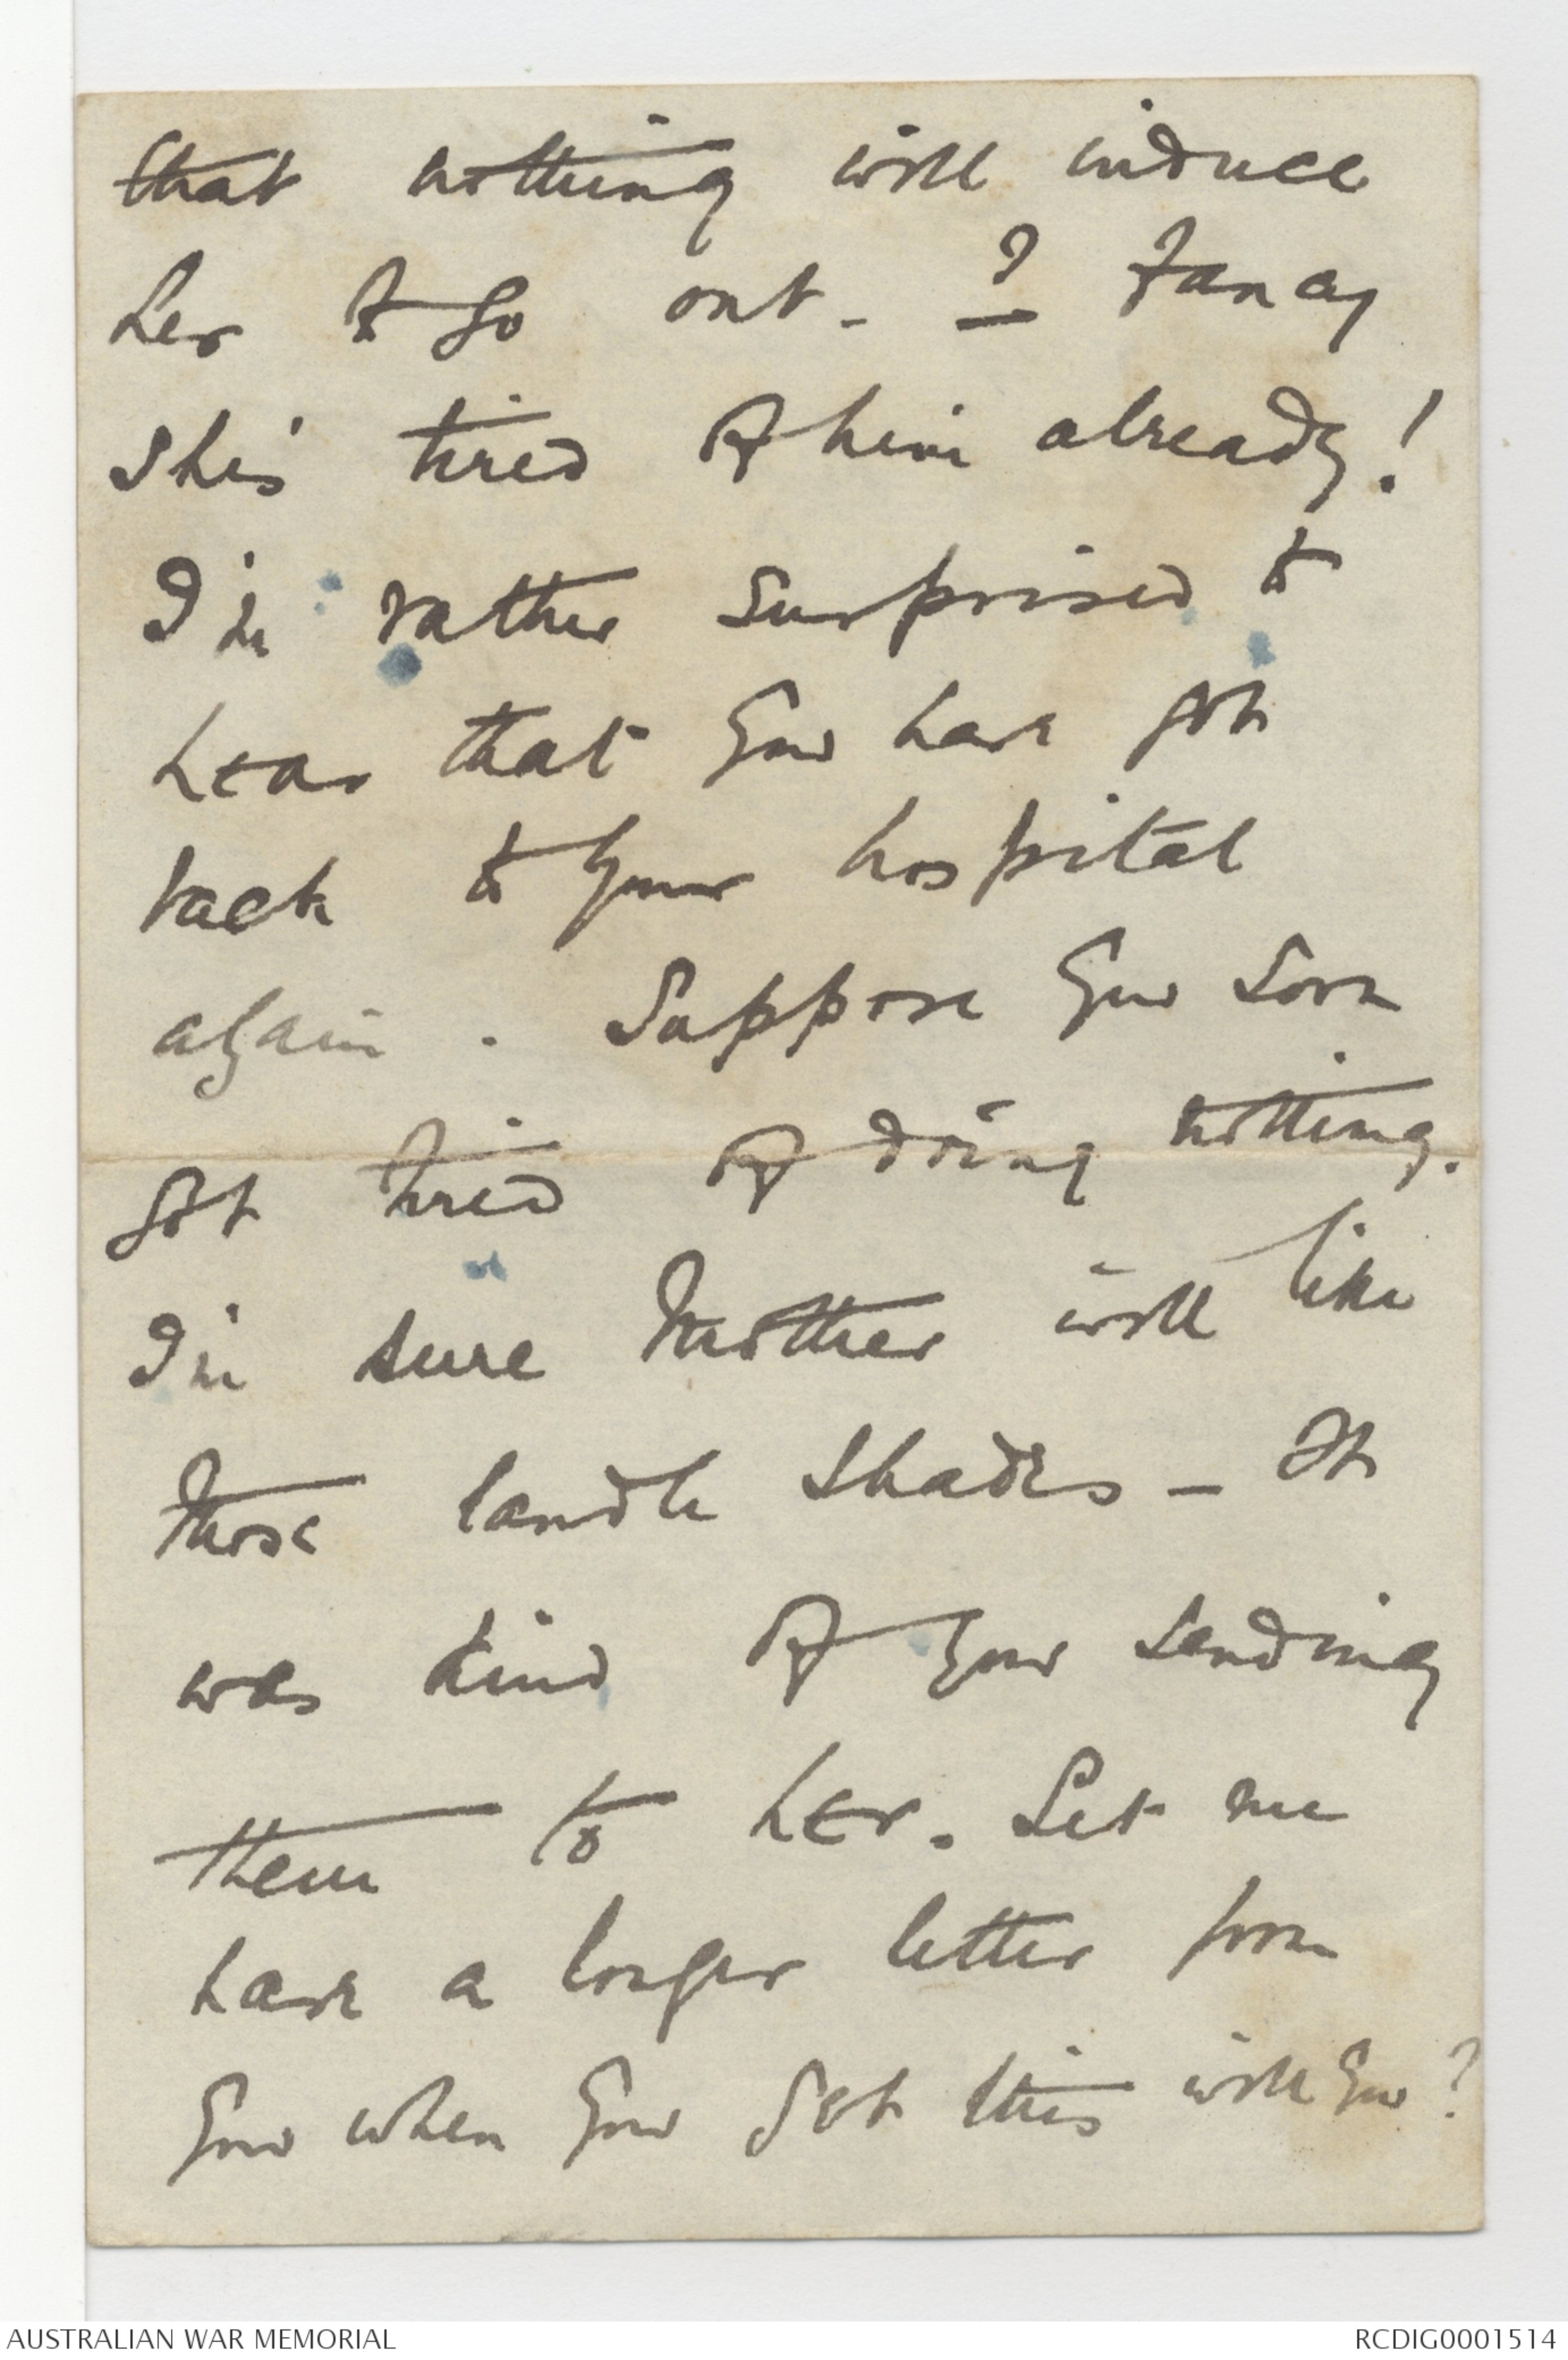 that nothing will induce
her to go out - ? Fancy
She's tired of him already!
I'm rather surprised to
hear that you have got
back to your hospital
again. Suppose you soon
got tired of doing nothing.
I'm sure Mother will like
those candle shades - It
was kind of you sending
them to her. Let me
have a longer letter from
you when you get this will you?
AUSTRALIAN WAR MEMORIAL
RCDIG0001514